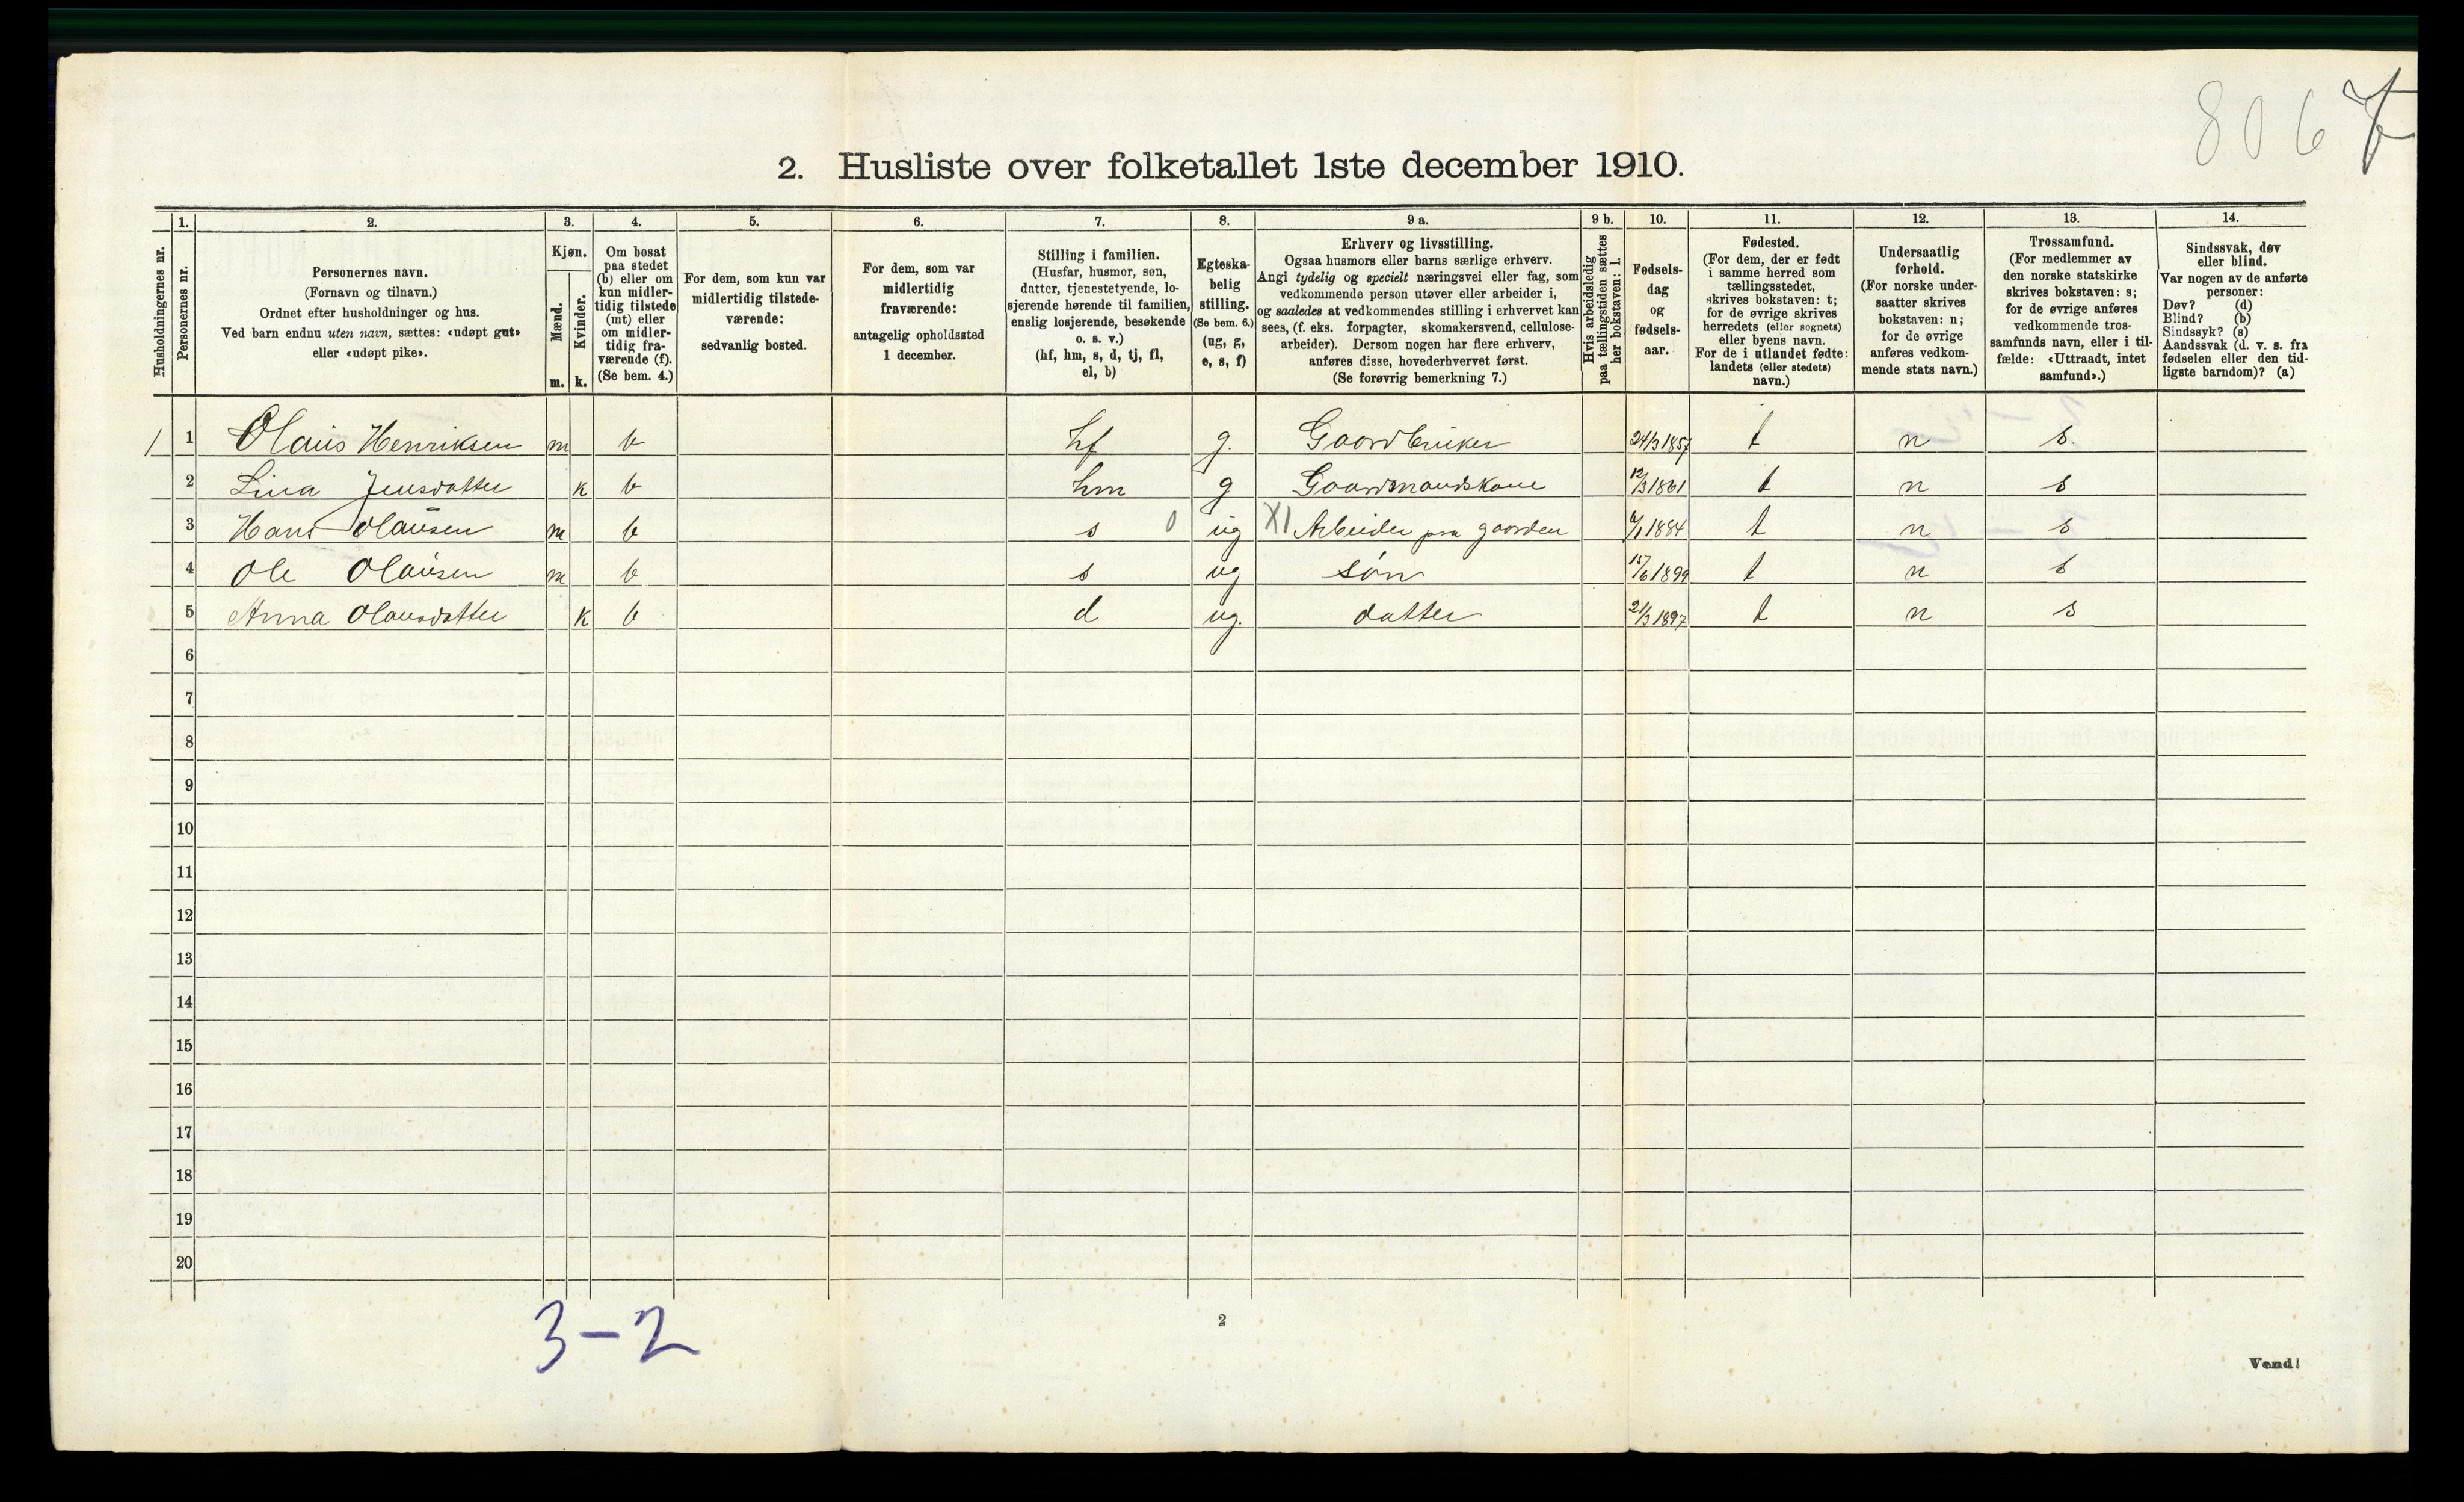 8067
2. Husliste over folketallet 1ste december 1910.
1. 2. 3. 4. 5. 6. 7. 8. 9 a. 9 b. 10. 11. 12. 13. 14.
Husholdningernes nr.
Personernes nr.
Personernes navn.
(Fornavn og tilnavn.)
Ordnet efter husholdninger og hus.
Ved barn endnu uten navn, sættes: «udøpt gut»
eller «udøpt pike».
Kjøn.
Mænd.
Kvinder.
m. k.
Om bosat
paa stedet
(b) eller om
kun midler-
tidig tilstede
(mt) eller
om midler-
tidig fra-
værende (f).
(Se bem. 4.)
For dem, som kun var
midlertidig tilstede-
værende:
sedvanlig bosted.
For dem, som var
midlertidig
fraværende:
antagelig opholdssted
1 december.
Stilling i familien.
(Husfar, husmor, søn,
datter, tjenestetyende, lo-
sjerende hørende til familien,
enslig losjerende, besøkende
o. s. v.)
(hf, hm, s, d, tj, fl,
el, b)
Egteska-
belig
stilling.
(Se bem. 6.)
(ug, g,
e, s, f)
Erhverv og livsstilling.
Ogsaa husmors eller barns særlige erhverv.
Angi tydelig og specielt næringsvei eller fag, som
vedkommende person utøver eller arbeider i,
og saaledes at vedkommendes stilling i erhvervet kan
sees, (f. eks. forpagter, skomakersvend, cellulose-
arbeider). Dersom nogen har flere erhverv,
anføres disse, hovederhvervet først.
(Se forøvrig bemerkning 7.)
Hvis arbeidsledig
paa tællingstiden sættes
her bokstaven: l.
Fødsels-
dag
og
fødsels-
aar.
Fødested.
(For dem, der er født
i samme herred som
tællingsstedet,
skrives bokstaven: t;
for de øvrige skrives
herredets (eller sognets)
eller byens navn.
For de i utlandet fødte:
landets (eller stedets)
navn.)
Undersaatlig
forhold.
(For norske under-
saatter skrives
bokstaven: n;
for de øvrige
anføres vedkom-
mende stats navn.)
Trossamfund.
(For medlemmer av
den norske statskirke
skrives bokstaven: s;
for de øvrige anføres
vedkommende tros-
samfunds navn, eller i til-
fælde: «Uttraadt, intet
samfund».)
Sindssvak, døv
eller blind.
Var nogen av de anførte
personer:
Døv? (d)
Blind? (b)
Sindssyk? (s)
Aandssvak (d. v. s. fra
fødselen eller den tid-
ligste barndom)? (a)
1 1 Olaus Henriksen m b hf g. Gaardbruker 24/3 1857 t n s.
2 Lina Jensdatter k b hm g Gaardmandskone 12/3 1861 t n s
3 Hans Olausen m b s 0 ug X1 Arbeider paa gaarden 6/1 1884 t n s
4 Ole Olausen m b s ug søn 15/6 1899 t n s
5 Anna Olausdatter k b d ug. datter 21/3 1897 t n s
6
7
8
9
10
11
12
13
14
15
16
17
18
19
20
3-2
2
Vend!